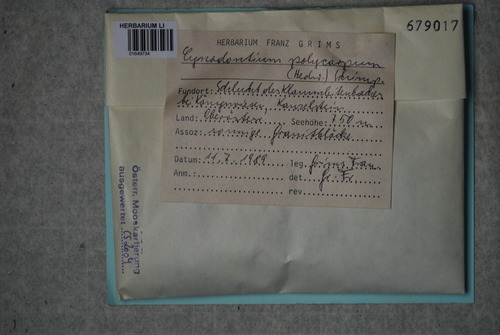 HERBARIUM LI
01649734
679017
HERBARIUM FRANZ GRIMS
Cynodontium polycarpum
(Hedw.) Schimp.
Fundort: Schlucht des Klammleitenbaches
Land: Oberösterr. Seehöhe: 750 m
Assoz: sonnige Granitblöcke
Datum: 11.7.1989 leg. Grims Franz
Anm.: det. Gr. Fr.
rev.
Österr. Mooskartierung
ausgewertet